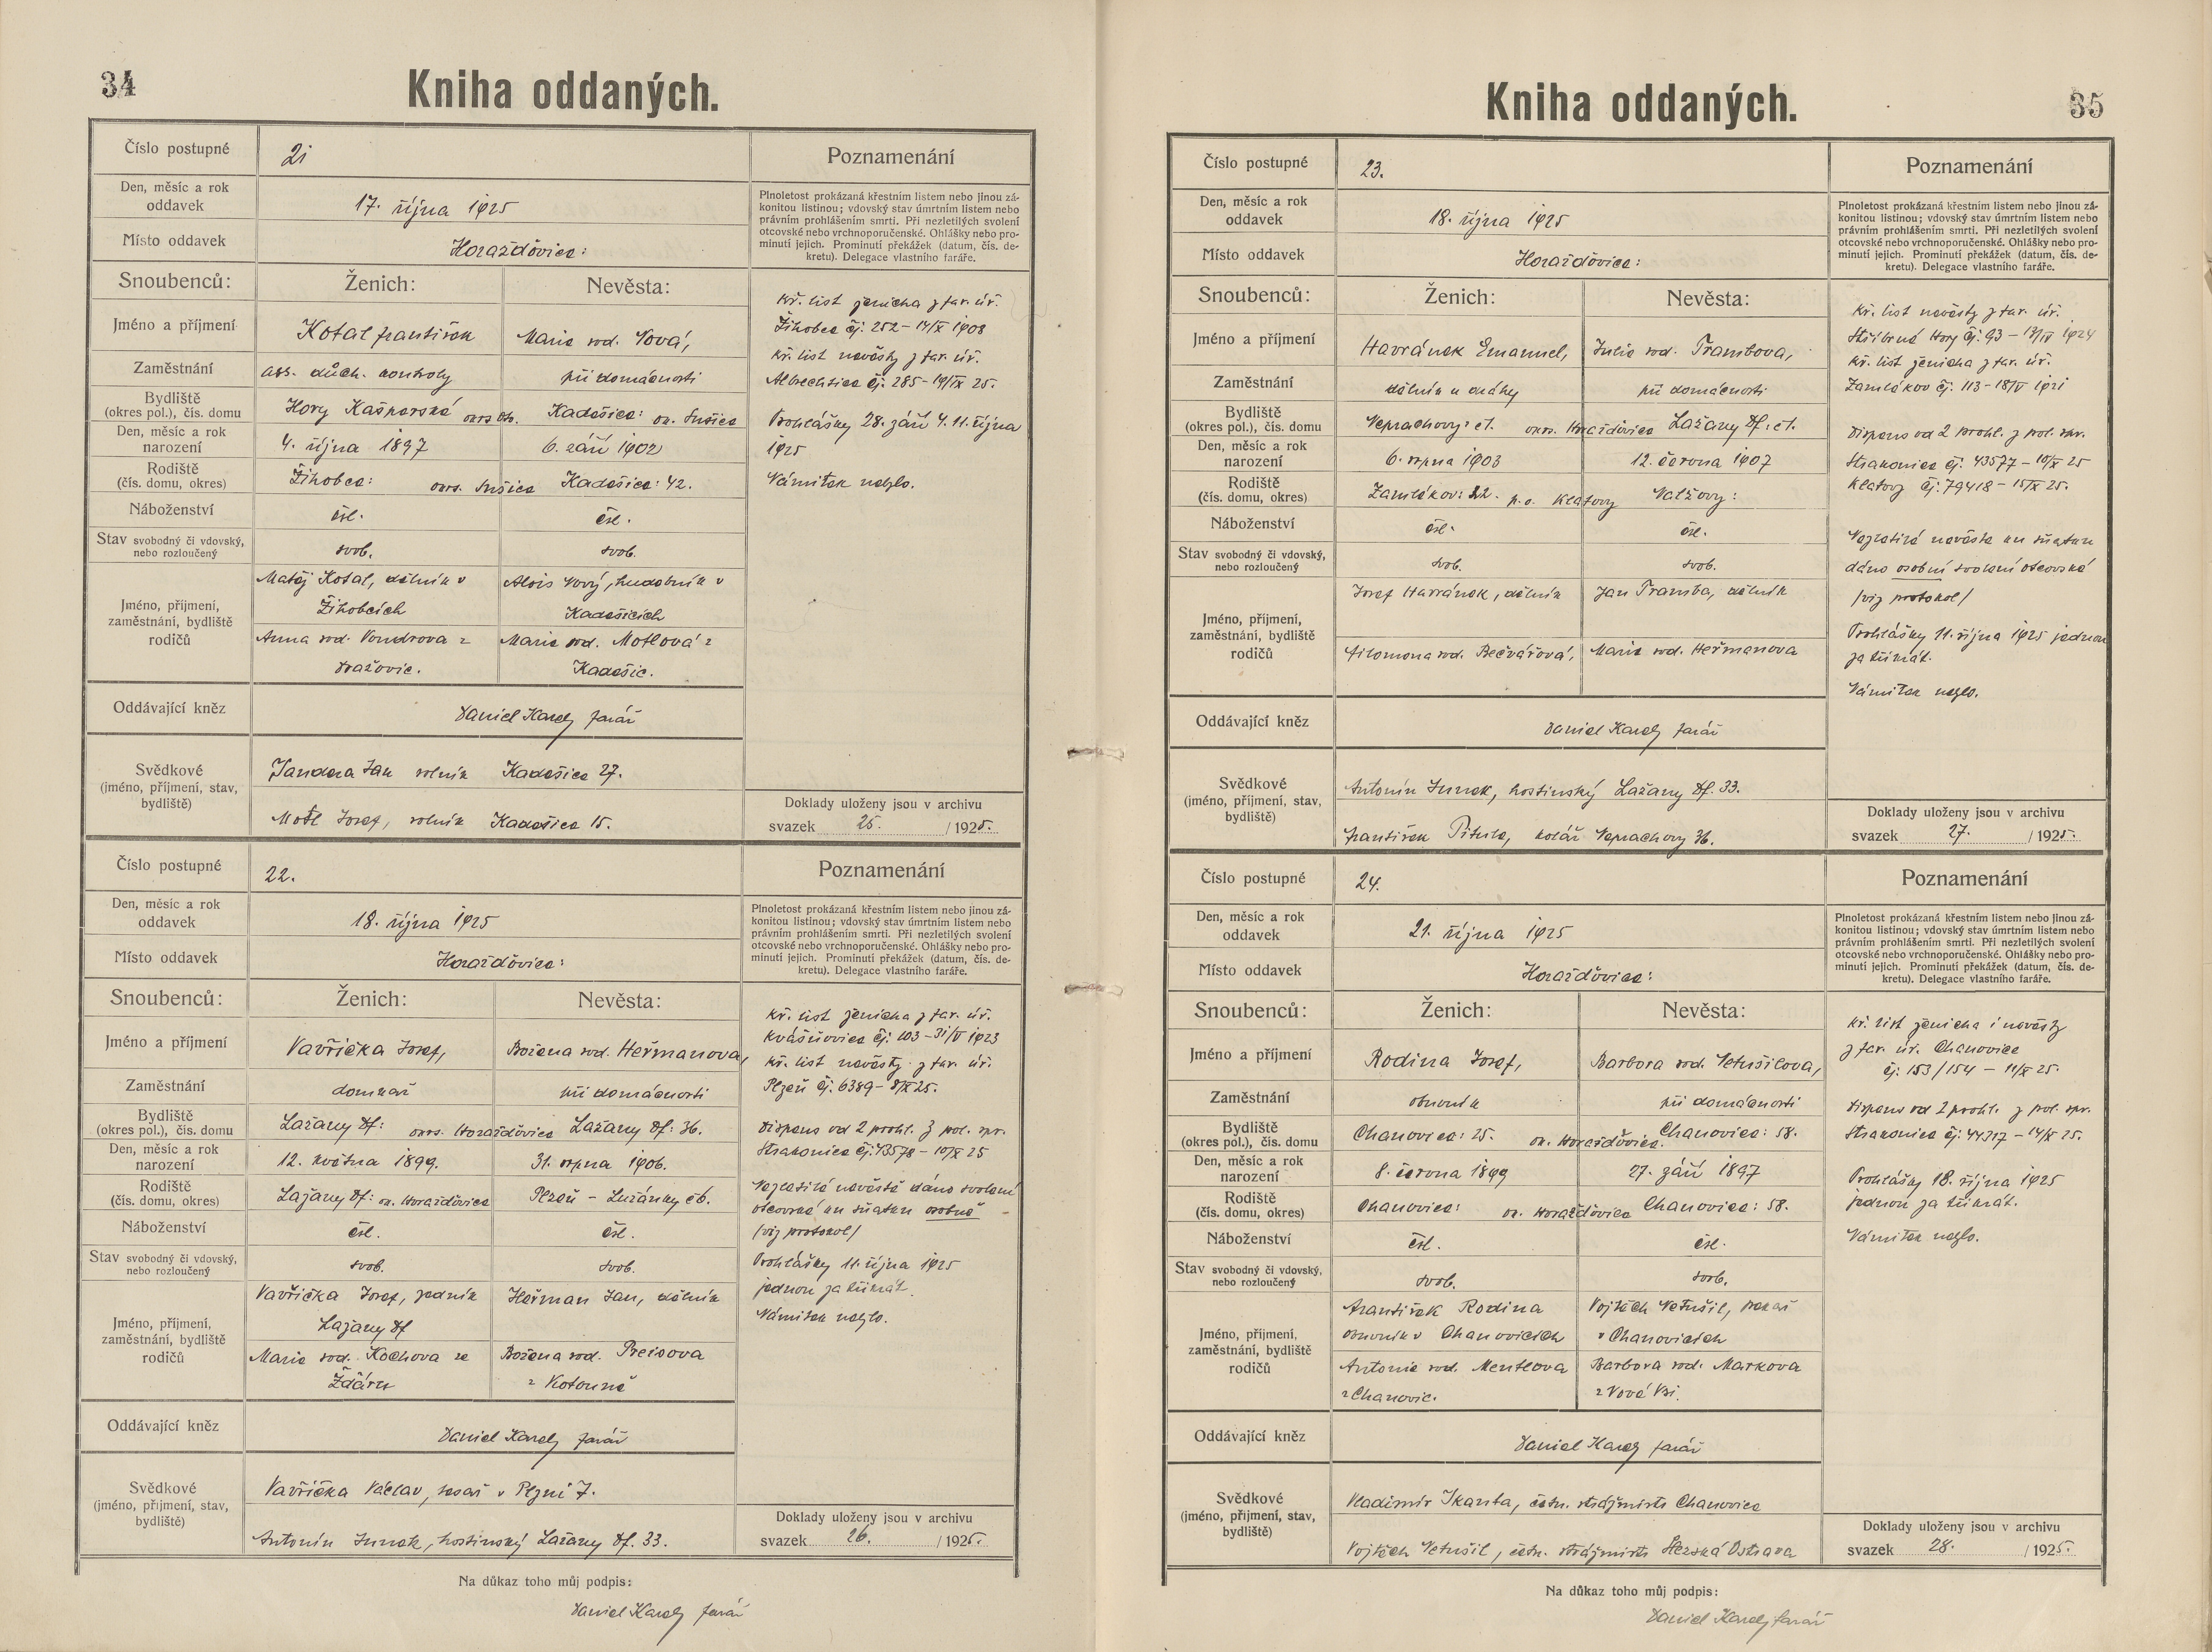 34
Kniha oddaných.
Číslo postupné 21
Poznamenání
Den, měsíc a rok oddavek 17. října 1925
Místo oddavek Horažďovice:
Plnoletost prokázaná křestním listem nebo jinou zá-
konitou listinou; vdovský stav úmrtním listem nebo
právním prohlášením smrti. Při nezletilých svolení
otcovské nebo vrchnoporučenské. Ohlášky nebo pro-
minutí jejich. Prominutí překážek (datum, čís. de-
kretu). Delegace vlastního faráře.
Snoubenců: Ženich: Nevěsta:
Jméno a příjmení Kotal František Marie roz. Nová,
Zaměstnání ass. důch. kontroly při domácnosti
Bydliště (okres pol.), čís. domu Hory Kašperské Kadešice: ok. Sušice
Den, měsíc a rok narození 4. října 1897 6. září 1902
Rodiště (čís. domu, okres) Žihobce: okrs. Sušice Kadešice: 42.
Náboženství čsl. čsl.
Stav svobodný či vdovský, nebo rozloučený svob. svob.
Jméno, příjmení, zaměstnání, bydliště rodičů
Matěj Kotal, dělník v Alois Nový, hudebník v
Žihobcích Kadešicích
Anna rod. Vondrova z Marie rod. Motlová z
Dražovic. Kadešic.
Oddávající kněz Daniel Karely farář
Svědkové (jméno, příjmení, stav, bydliště)
Jandera Jan rolník Kadešice 27.
Motl Josef, rolník Kadešice 15.
Kř. list ženicha z far. úř.
Žihobce čj: 252 - 14/IX 1908
Kř. list nevěsty z far. úř.
Albrechtice čj: 285 - 19/IX 25.
Prohlášky 28. září 4. 11. října
1925
Námitek nebylo.
Doklady uloženy jsou v archivu
svazek 25. / 1925.
Číslo postupné 22.
Poznamenání
Den, měsíc a rok oddavek 18. října 1925
Místo oddavek Horažďovice:
Plnoletost prokázaná křestním listem nebo jinou zá-
konitou listinou; vdovský stav úmrtním listem nebo
právním prohlášením smrti. Při nezletilých svolení
otcovské nebo vrchnoporučenské. Ohlášky nebo pro-
minutí jejich. Prominutí překážek (datum, čís. de-
kretu). Delegace vlastního faráře.
Snoubenců: Ženich: Nevěsta:
Jméno a příjmení Vavřička Josef, Božena rod. Heřmanova,
Zaměstnání domkař při domácnosti
Bydliště (okres pol.), čís. domu Lažany Df: okrs. Horažďovice Lažany Df: 36.
Den, měsíc a rok narození 12. května 1899. 31. srpna 1906.
Rodiště (čís. domu, okres) Lažany Df: ok. Horažďovice Plzeň - Lužánky č6.
Náboženství čsl. čsl.
Stav svobodný či vdovský, nebo rozloučený svob. svob.
Jméno, příjmení, zaměstnání, bydliště rodičů
Vavřička Josef, zedník Heřman Jan, dělník
Lažany Df
Marie rod. Kochova ze Božena rod. Preisova
Žďáru z Kotouně
Oddávající kněz Daniel Karely farář
Svědkové (jméno, příjmení, stav, bydliště)
Vavřička Václav, tesař v Plzni 7.
Antonín Junek, hostinský Lažany Df. 33.
Kř. list ženicha z far. úř.
Kvášňovice čj: 103 - 31/V 1923
Kř. list nevěsty z far. úř.
Plzeň čj. 6389 - 8/X 25.
Dispens od 2 prohl. z pol. spr.
Strakonice čj: 43578 - 10/X 25
Nezletilé nevěstě dáno svolení
otcovské ku sňatku osobně
/viz protokol/
Prohlášky 11. října 1925
jednou za třikrát.
Námitek nebylo.
Doklady uloženy jsou v archivu
svazek 26. / 1925.
Na důkaz toho můj podpis:
Daniel Karely farář
35
Kniha oddaných.
Číslo postupné 23.
Poznamenání
Den, měsíc a rok oddavek 18. října 1925
Místo oddavek Horažďovice:
Plnoletost prokázaná křestním listem nebo jinou zá-
konitou listinou; vdovský stav úmrtním listem nebo
právním prohlášením smrti. Při nezletilých svolení
otcovské nebo vrchnoporučenské. Ohlášky nebo pro-
minutí jejich. Prominutí překážek (datum, čís. de-
kretu). Delegace vlastního faráře.
Snoubenců: Ženich: Nevěsta:
Jméno a příjmení Havránek Emanuel, Julie rod. Trambova,
Zaměstnání dělník u dráhy při domácnosti
Bydliště (okres pol.), čís. domu Neprachovy: čt. okrs. Horažďovice Lažany Df: čt.
Den, měsíc a rok narození 6. srpna 1903 12. června 1907
Rodiště (čís. domu, okres) Zamlékov: 22. p. o. Klatovy Nalžovy:
Náboženství čsl. čsl.
Stav svobodný či vdovský, nebo rozloučený svob. svob.
Jméno, příjmení, zaměstnání, bydliště rodičů
Josef Havránek, dělník Jan Tramba, dělník
Filomena rod. Bečvářová, Marie rod. Heřmanova
Oddávající kněz Daniel Karely farář
Svědkové (jméno, příjmení, stav, bydliště)
Antonín Junek, hostinský Lažany Df. 33.
František Pitule, kolář Neprachovy 36.
Kř. list nevěsty z far. úř.
Stříbrné Hory čj: 93 - 13/IV 1924
Kř. list ženicha z far. úř.
Zamlékov čj: 113 - 18/V 1921
Dispens od 2 prohl. z pol. spr.
Strakonice čj: 43577 - 10/X 25
Klatovy čj: 79418 - 15/X 25.
Nezletilé nevěstě ku sňatku
dáno osobní svolení otcovské
/viz protokol/
Prohlášky 11. října 1925 jednou
za třikrát.
Námitek nebylo.
Doklady uloženy jsou v archivu
svazek 27. / 1925.
Číslo postupné 24.
Poznamenání
Den, měsíc a rok oddavek 21. října 1925
Místo oddavek Horažďovice:
Plnoletost prokázaná křestním listem nebo jinou zá-
konitou listinou; vdovský stav úmrtním listem nebo
právním prohlášením smrti. Při nezletilých svolení
otcovské nebo vrchnoporučenské. Ohlášky nebo pro-
minutí jejich. Prominutí překážek (datum, čís. de-
kretu). Delegace vlastního faráře.
Snoubenců: Ženich: Nevěsta:
Jméno a příjmení Rodina Josef, Barbora rod. Netušilova,
Zaměstnání obuvník při domácnosti
Bydliště (okres pol.), čís. domu Chanovice: 25. ok. Horažďovice. Chanovice: 58.
Den, měsíc a rok narození 8. června 1899 27. září 1897
Rodiště (čís. domu, okres) Chanovice: ok. Horažďovice Chanovice: 58.
Náboženství čsl. čsl.
Stav svobodný či vdovský, nebo rozloučený svob. svob.
Jméno, příjmení, zaměstnání, bydliště rodičů
František Rodina Vojtěch Netušil, pekař
obuvník v Chanovicích v Chanovicích
Antonie rod. Mentlova Barbora rod. Markova
z Chanovic. z Nové Vsi.
Oddávající kněz Daniel Karely farář
Svědkové (jméno, příjmení, stav, bydliště)
Vladimír Skanta, četn. strážmistr Chanovice
Vojtěch Netušil, četn. strážmistr Slezská Ostrava
Kř. list ženicha i nevěsty
z far. úř. Chanovice
čj: 153/154 - 11/X 25.
Dispens od 2 prohl. z pol. spr.
Strakonice čj: 44317 - 14/X 25.
Prohlášky 18. října 1925
jednou za třikrát.
Námitek nebylo.
Doklady uloženy jsou v archivu
svazek 28. / 1925.
Na důkaz toho můj podpis:
Daniel Karely farář